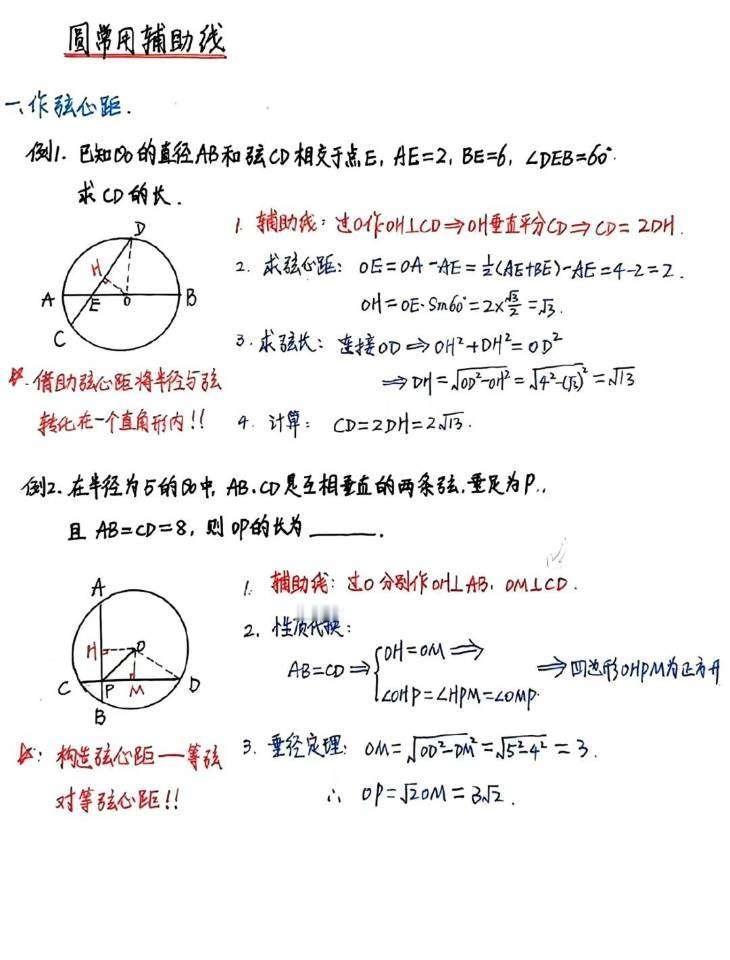 圆常用辅助线
一、作弦心距.
例1. 已知⊙O的直径AB和弦CD相交于点E, AE=2, BE=6, ∠DEB=60°.
求CD的长.
A B C D E H O
1. 辅助线: 过O作OH⊥CD⇒OH垂直平分CD⇒CD=2DH.
2. 求弦心距: OE=OA-AE=½(AE+BE)-AE=4-2=2.
OH=OE·Sin60°=2×√3/2=√3.
3. 求弦长: 连接OD⇒OH²+DH²=OD²
⇒DH=√(OD²-OH²)=√(4²-(√3)²)=√13
☆. 借助弦心距将半径与弦
转化在一个直角形内!!
4. 计算: CD=2DH=2√13.
例2. 在半径为5的⊙O中, AB、CD是互相垂直的两条弦, 垂足为P.,
且 AB=CD=8, 则OP的长为______.
A H O C P M D B
1. 辅助线: 过O分别作OH⊥AB, OM⊥CD.
2. 性质代换:
AB=CD⇒{OH=OM⇒
∠OHP=∠HPM=∠OMP.
⇒四边形OHPM为正方形
☆: 构造弦心距—等弦
对等弦心距!!
3. 垂径定理: OM=√(OD²-DM²)=√(5²-4²)=3.
∴ OP=√2OM=3√2.